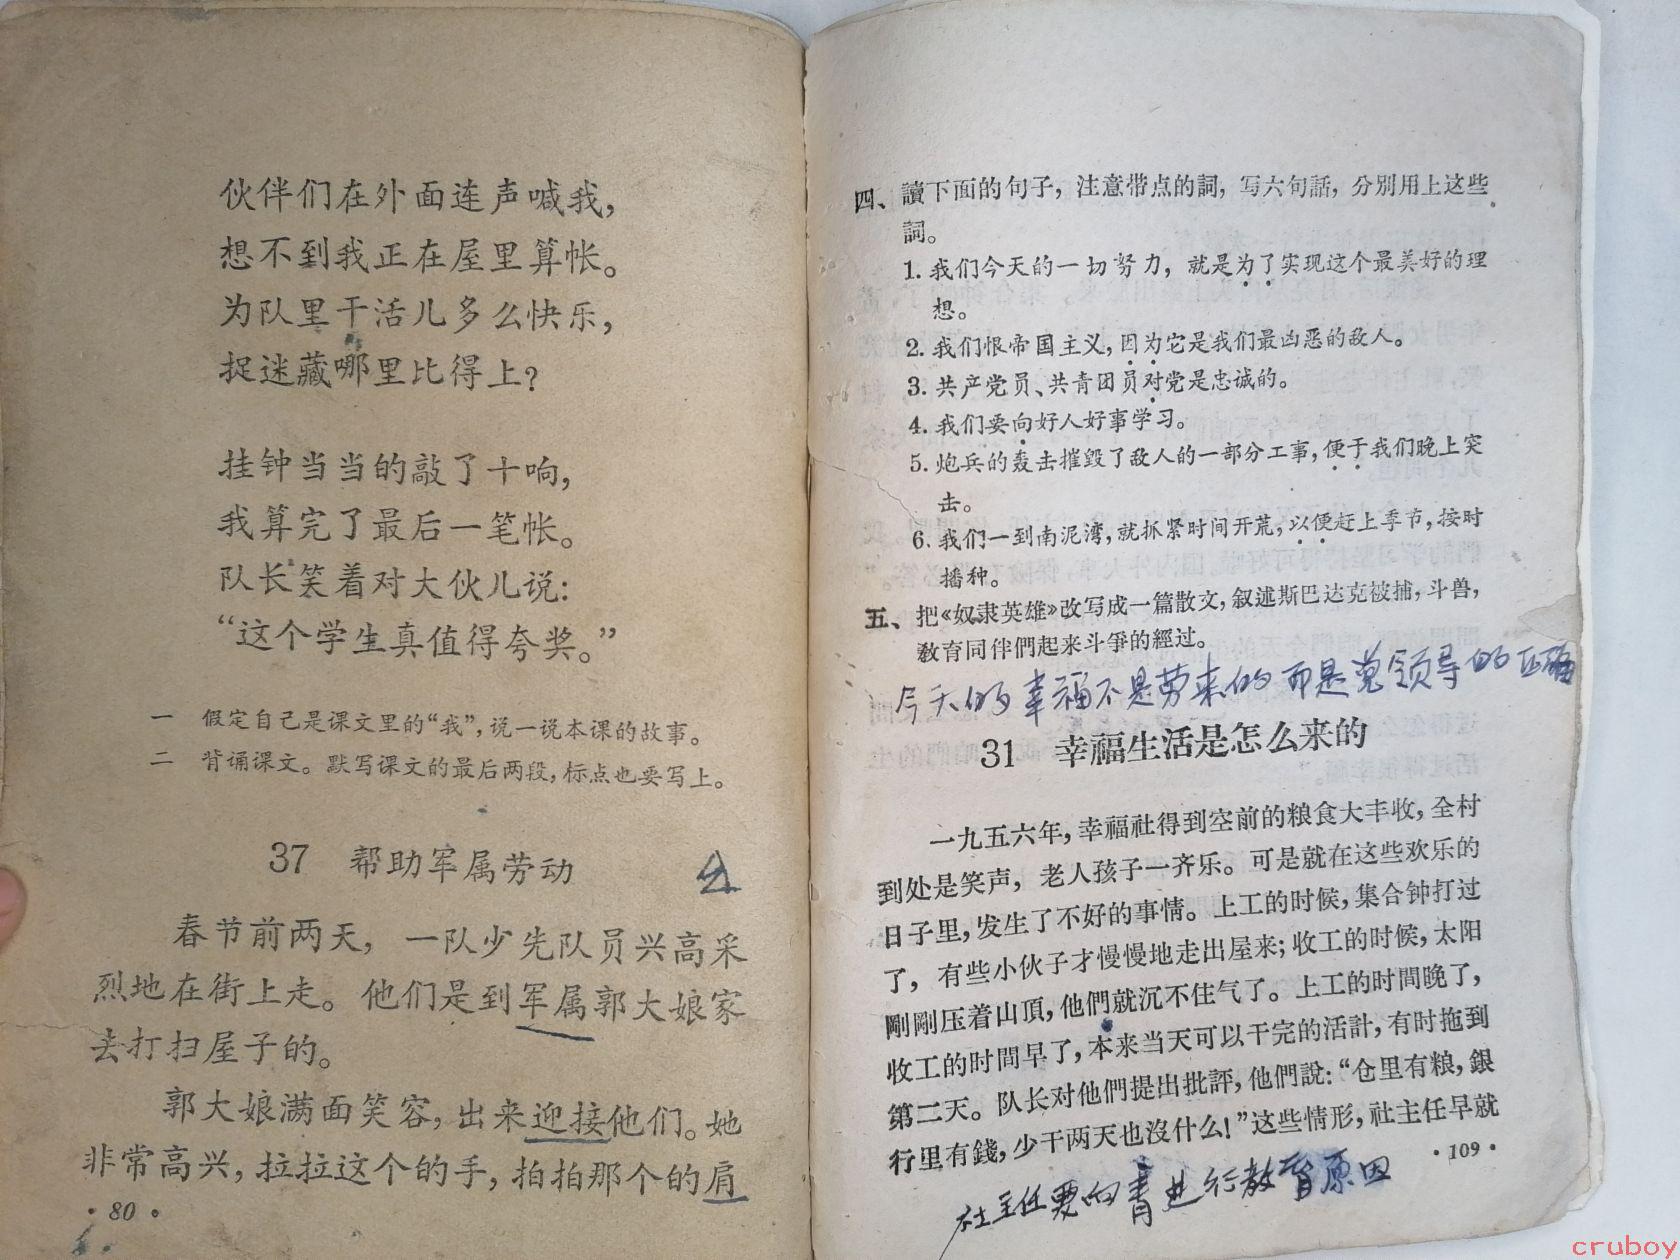 伙伴们在外面连声喊我，
想不到我正在屋里算帐。
为队里干活儿多么快乐，
捉迷藏哪里比得上？
挂钟当当的敲了十响，
我算完了最后一笔帐。
队长笑着对大伙儿说：
“这个学生真值得夸奖。”
一 假定自己是课文里的“我”，说一说本课的故事。
二 背诵课文。默写课文的最后两段，标点也要写上。
37 帮助军属劳动
春节前两天，一队少先队员兴高采
烈地在街上走。他们是到军属郭大娘家
去打扫屋子的。
郭大娘满面笑容，出来迎接他们。她
非常高兴，拉拉这个的手，拍拍那个的肩
·80·
四、讀下面的句子，注意带点的詞，写六句話，分別用上这些
詞。
1. 我们今天的一切努力，就是为了实现这个最美好的理
想。
2. 我们恨帝国主义，因为它是我们最凶恶的敌人。
3. 共产党员、共青团员对党是忠诚的。
4. 我们要向好人好事学习。
5. 炮兵的轰击摧毁了敌人的一部分工事，便于我们晚上突
击。
6. 我们一到南泥湾，就抓紧时间开荒，以便赶上季节，按时
播种。
五、把《奴隶英雄》改写成一篇散文，叙述斯巴达克被捕，斗兽，
教育同伴們起来斗爭的經过。
今天的幸福不是劳来的而是党领导的正确
31 幸福生活是怎么来的
一九五六年，幸福社得到空前的粮食大丰收，全村
到处是笑声，老人孩子一齐乐。可是就在这些欢乐的
日子里，发生了不好的事情。上工的时候，集合钟打过
了，有些小伙子才慢慢地走出屋来；收工的时候，太阳
剛剛压着山頂，他們就沉不住气了。上工的时間晚了，
收工的时間早了，本来当天可以干完的活計，有时拖到
第二天。队长对他們提出批評，他們說：“仓里有粮，銀
行里有錢，少干两天也沒什么！”这些情形，社主任早就
·109·
社主任要向青进行教育原因
cruboy